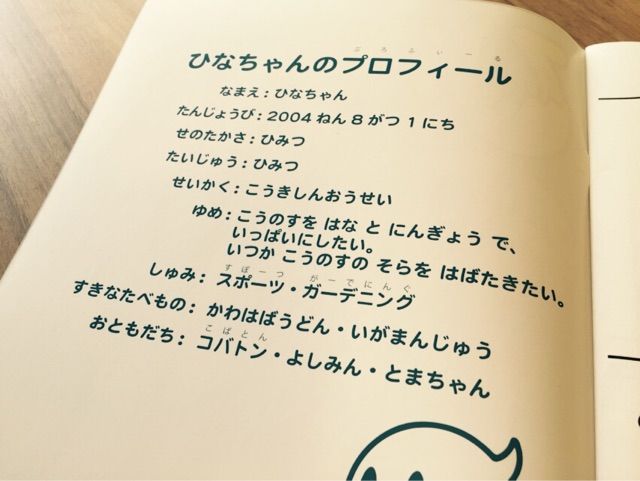 ぷろふぃーる
ひなちゃんのプロフィール
なまえ：ひなちゃん
たんじょうび：2004 ねん 8 がつ 1 にち
せのたかさ：ひみつ
たいじゅう：ひみつ
せいかく：こうきしんおうせい
ゆめ：こうのすを はな と にんぎょう で、
いっぱいにしたい。
いつか こうのすの そらを はばたきたい。
すぽーつ がーでにんぐ
しゅみ：スポーツ・ガーデニング
すきなたべもの：かわはばうどん・いがまんじゅう
こばとん
おともだち：コバトン・よしみん・とまちゃん